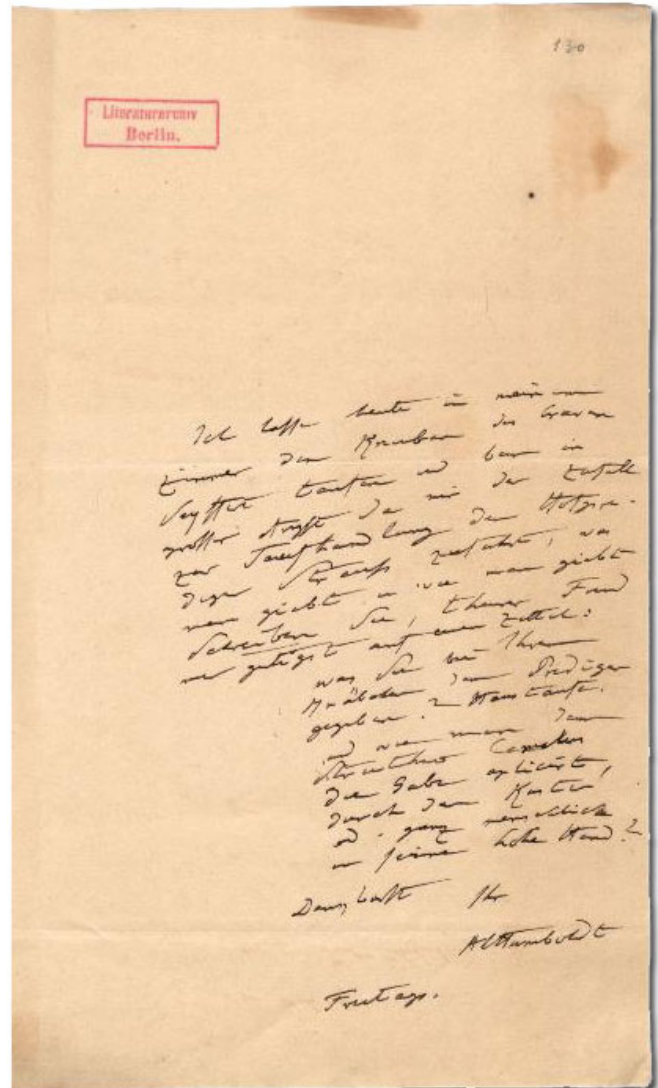 130
Literaturarchiv
Berlin.
Ich lasse heute in meinem
Zimmer den Knaben des braven
Seyffert taufen und bin in
großer Angst da mir der Zufall
zur Taufhandlung den Hofpre-
diger Strauß zuführt, was
man giebt u wie man giebt
Schreiben Sie, theurer Freund
mir gütigst auf einen Zettel:
was Sie bei Ihrem
Knäblein dem Prediger
gegeben? Haustaufe.
und wie man dem
die Gabe
durch den Küster,
od. ganz menschlich
in seine hohe Hand?
Dankbarst Ihr
AlHumboldt
Freitags.